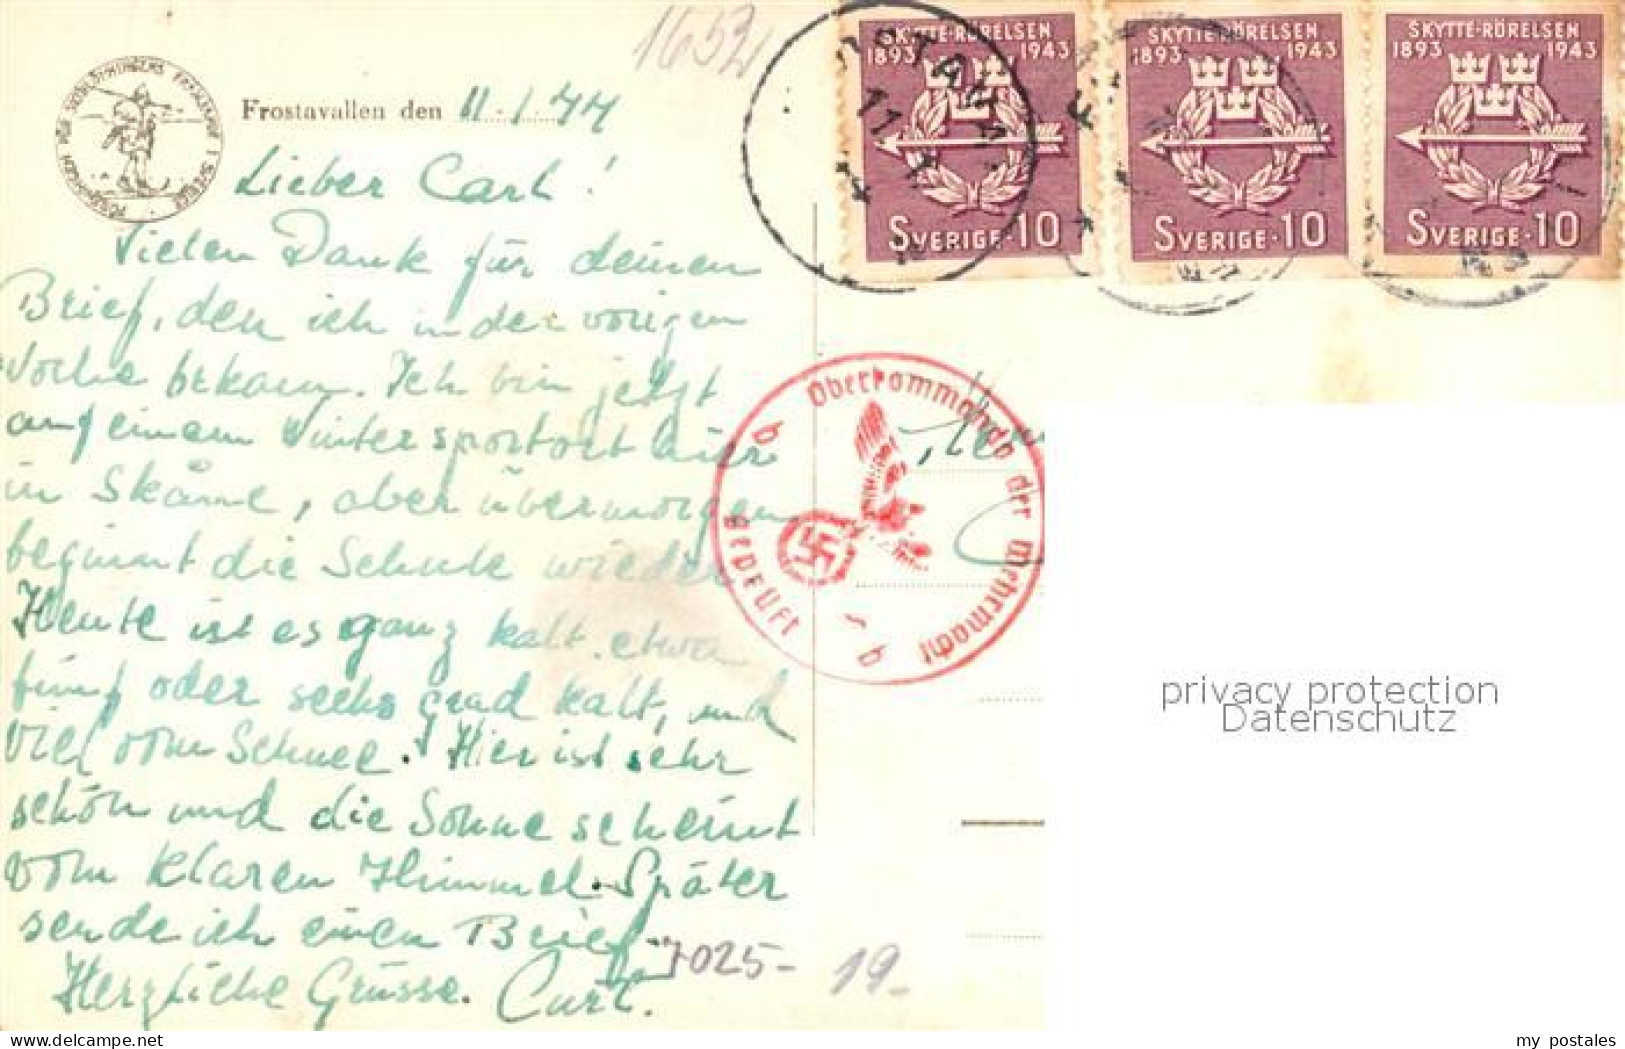 1652
SKYTTE-RÖRELSEN
1893 1943
SVERIGE·10
SKYTTE-RÖRELSEN
1893 1943
SVERIGE·10
SKYTTE-RÖRELSEN
1893 1943
SVERIGE·10
Frostavallen den 11·1·44
Lieber Carl!
Vielen Dank für deinen
Brief, den ich in der vorigen
Woche bekam. Ich bin jetzt
auf einem Wintersportort hier
in Skåne, aber übermorgen
beginnt die Schule wieder
Heute ist es ganz kalt. etwa
fünf oder sechs grad kalt, und
viel vom Schnee. Hier ist sehr
schön und die Sonne scheint
vom klaren Himmel. Später
sende ich einen Brief.
Herzliche Grüsse. Curt.
Oberkommando der Wehrmacht
geprüft
b
b
privacy protection
Datenschutz
7025-
19-
my postales
www.delcampe.net